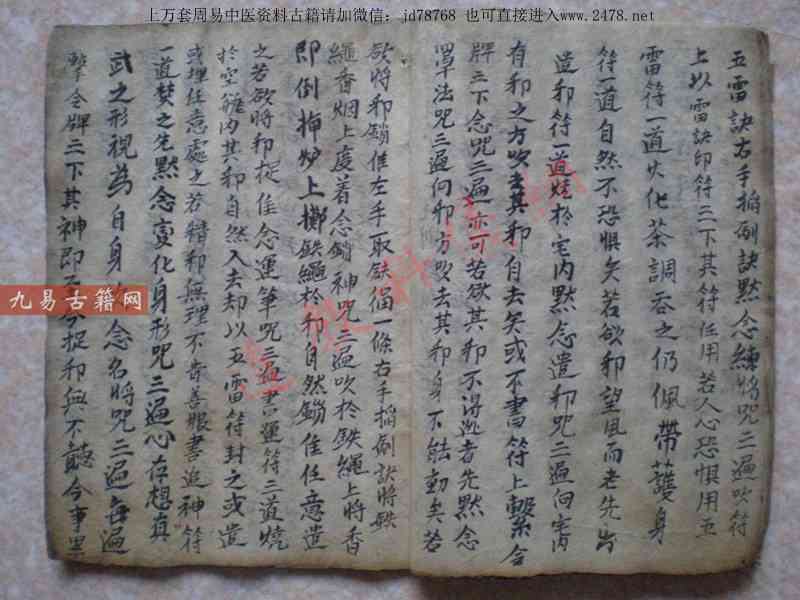 上万套周易中医资料古籍请加微信：jd78768 也可直接进入www.2478.net
五雷訣右手掐劍訣默念練將咒三遍吹符
上以雷訣印符三下其符任用若人心恐惧用五
雷符一道火化茶調吞之仍佩帶護身
符一道自然不恐惧矣若欲邪望風而走先書
遣邪符一道燒於宅内默念遣邪咒三遍向宅内
有邪之方吹去其邪自去矣或不書符上擊令
牌三下念咒三遍亦可若欲其邪不得逃者先默念
罩法咒三遍向邪方吹去其邪身不能動矣若
欲將邪鎖住左手取鉄繩一條右手掐劍訣將鉄
繩香烟上度着念鎖神咒三遍吹於鉄繩上將香
即倒插炉上擲鉄繩於邪自然鎖住任意遣
之若欲將邪捉住念運筆咒三遍書運符三道燒
於空瓶内其邪自然入去却以五雷符封之或遣
或埋任意處之若精邪無理不奇善服書追神符
一道焚之先默念变化身形咒三遍心存想真
武之形視為自身念名將咒三遍每遍
擊令牌三下其神即至令捉邪無不聽令事畢
九易古籍网